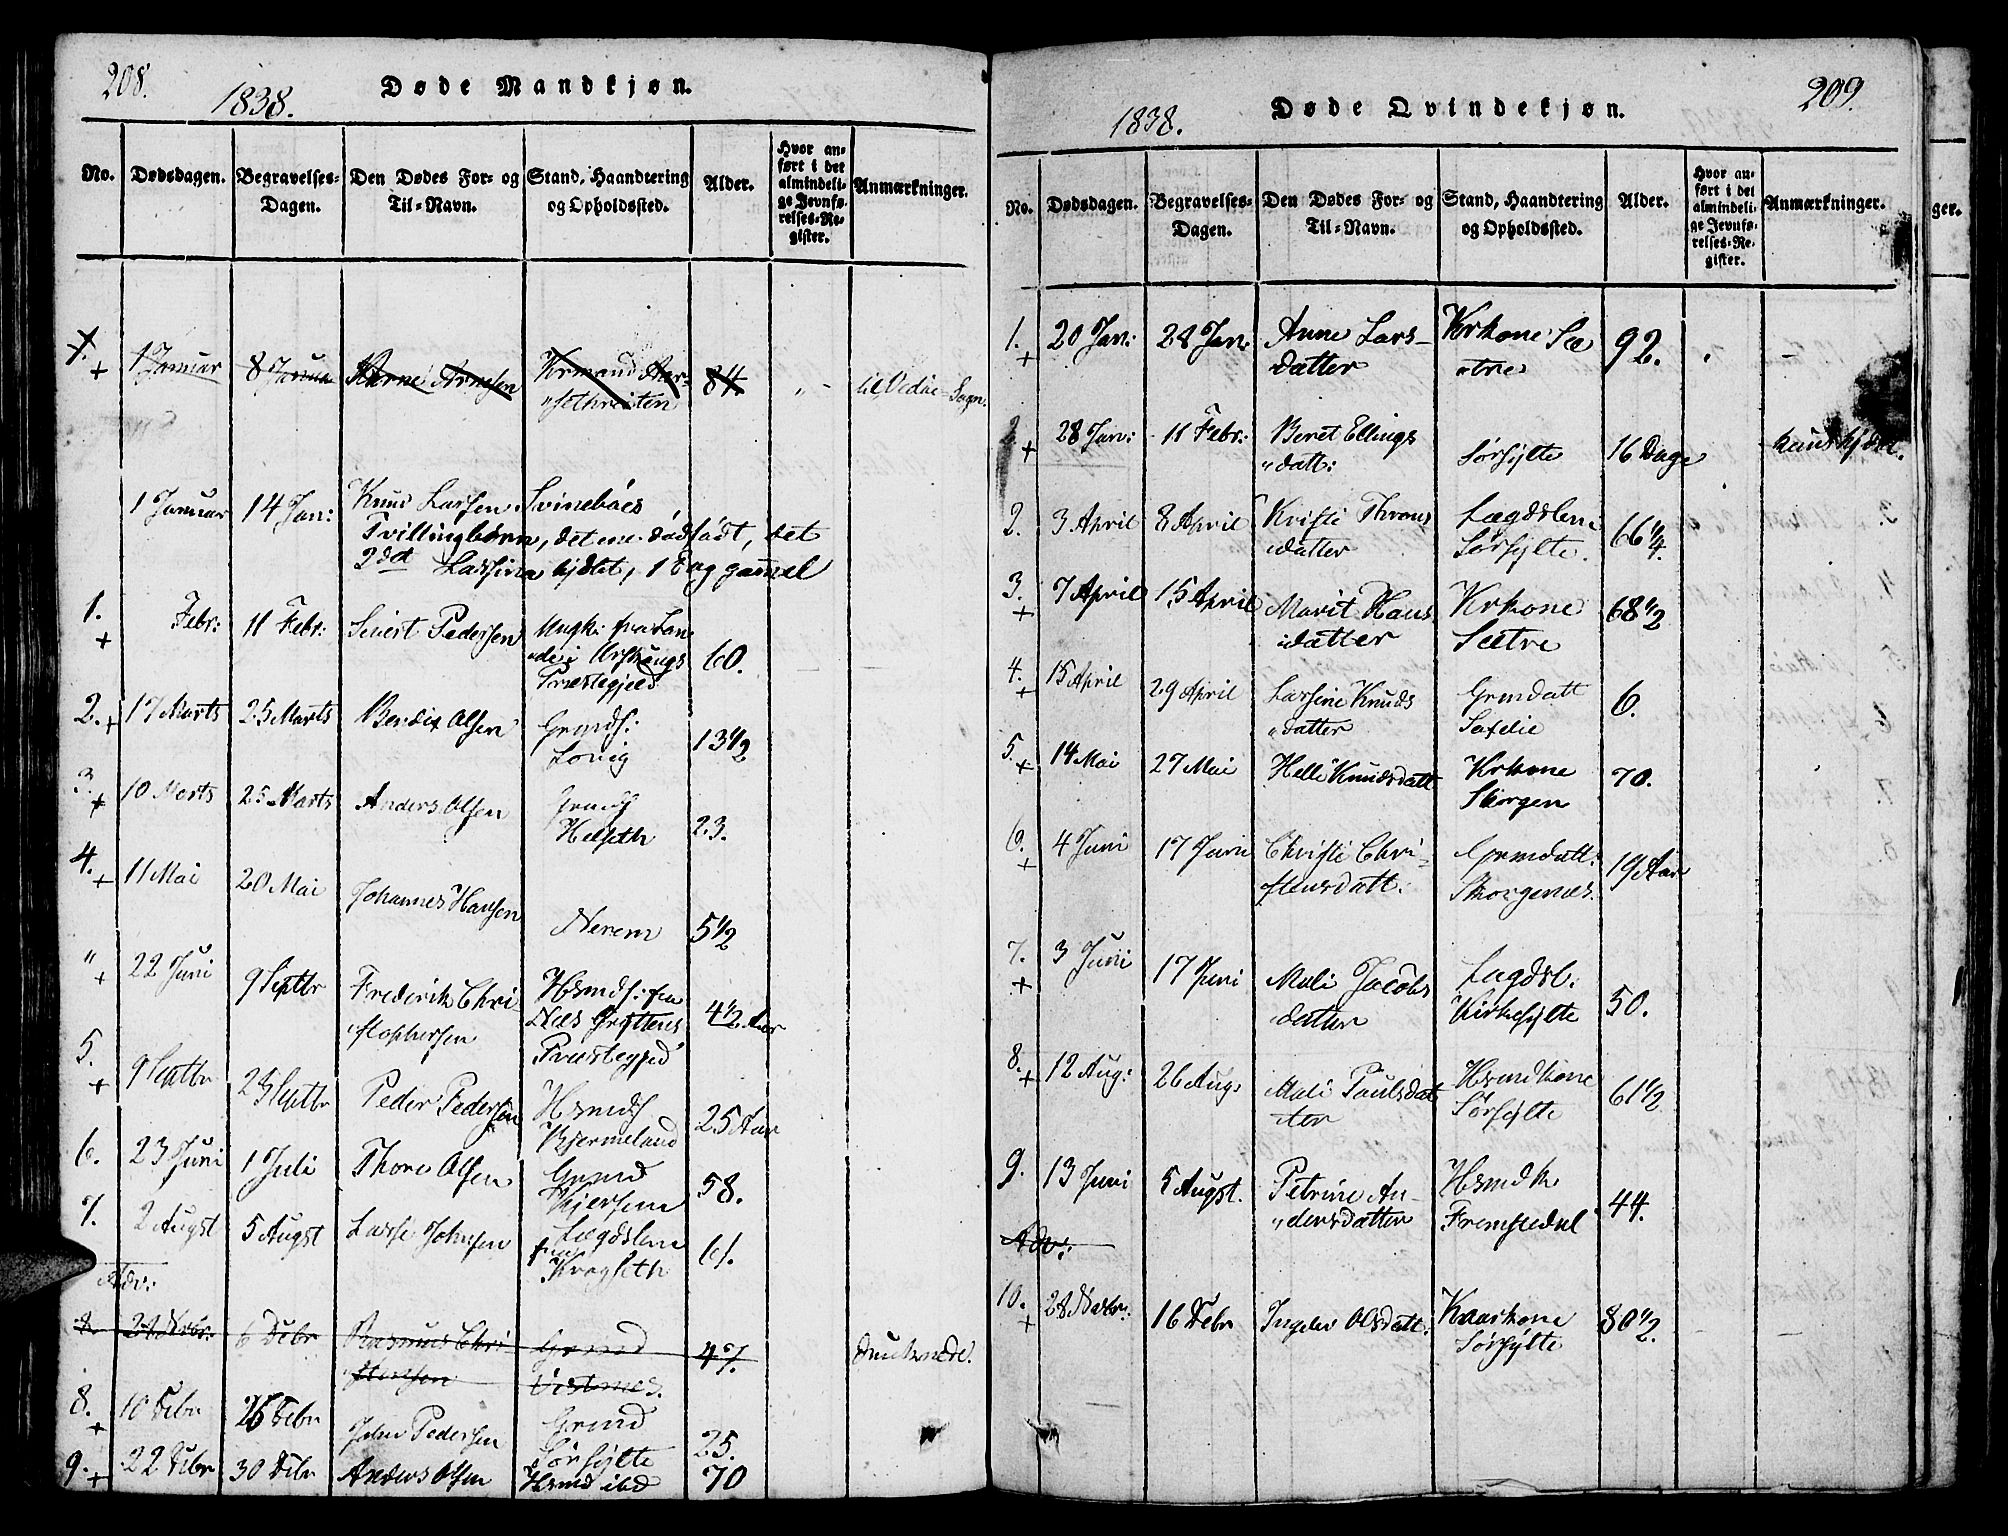 208.
1838.
Døde Mandkjøn.
No.
Dødsdagen.
Begravelses-
Dagen.
Den Dødes For- og
Til-Navn.
Stand, Haandtering
og Opholdssted.
Alder.
Hvor an-
ført i det
almindeli-
ge Jevnfø-
relses-Re-
gister.
Anmærkninger.
1. + 1 Januar 8 Januar Arne Arnesen Krmand 84. til Sogn.
1 Januar 14 Jan: Knud Larsen Svinebøes
Tvillingbørn, det ene dødfødt, det
2det hjdbt, 1 Dag gammel
1. + Febr: 11 Febr: Sivert Pedersen
60.
Præstegjeld
2. + 17 Marts 25 Marts Bendix Olsen Grmds: 13 1/2
3. + 10 Marts 25 Marts Anders Olsen Grmds
Helseth 23.
4. + 11 Mai 20 Mai Johannes Hansen Nerem 5 1/2
" + 22 Juni 9 Septbr Frederik Chri
stophersen Hsmds: fra
Næs Gryttens
Præstegjed 4 1/2 Aar
5. + 9 Septbr 23 Septbr Peder Pedersen Hsmds
Bjermeland 25 Aar
6. 23 Juni 1 Juli Thore Olsen Grmd
58.
7. 2 Augst 5 Augst Lasse Johnsen Lægdslem
fra
61.
Adv:
8. 24 Novbr: 6 Debr Rasmus Chri
stensen Grmd
Vestnes. 47. druknede.
8. + 10 Debr 26 Debr John Pedersen Grmd
Sørsylte 25.
9. + 22 Debr 30 Debr Anders Olsen Hsmd ibd 70
209.
1838.
Døde Qvindekjøn.
No.
Dødsdagen.
Begravelses-
Dagen.
Den Dødes For- og
Til-Navn.
Stand, Haandtering
og Opholdssted.
Alder.
Hvor an-
ført i det
almindeli-
ge Jevnfø-
relses-Re-
gister.
Anmærkninger.
ger.
1. + 20 Jan: 28 Jan: Anne Lars-
datter Krkone Sæ
tre 92.
2. + 28 Jan: 11 Febr: Beret Ellings
datt: Sørsylte 16 Dage
2. 3 April 8 April Kristi Throns
datter Lægdslem
Sørsylte. 66 1/4.
3. + 7 April 15 April Marit Hans
datter Krkone
Sætre 68 1/2
4. + 15 April 29 April Lassine Knuds
datter Grmdatt
6.
5. + 14 Mai 27 Mai Helle Knudsdatt Krkone
Skorgen 70.
6. + 4 Juni 17 Juni Christi Chri-
stensdatt: Grmdatt:
Skorgenes. 19 Aar
7. + 3 Juni 17 Juni Mali Jacobs
datter Lægdsl:
Kirkesylte 50.
8. + 12 Aug: 26 Aug: Mali Paulsdat
ter Hsmdkone
Sørsylte 61 1/2
9. 13 Juni 5 Augst. Petrine An-
dersdatter Hsmdk
Fremstedal 44.
Adv:
10. + 28 Novbr: 16 Debr Ingeler Olsdatt: Kaarkone
Sørsylte 80 1/2.